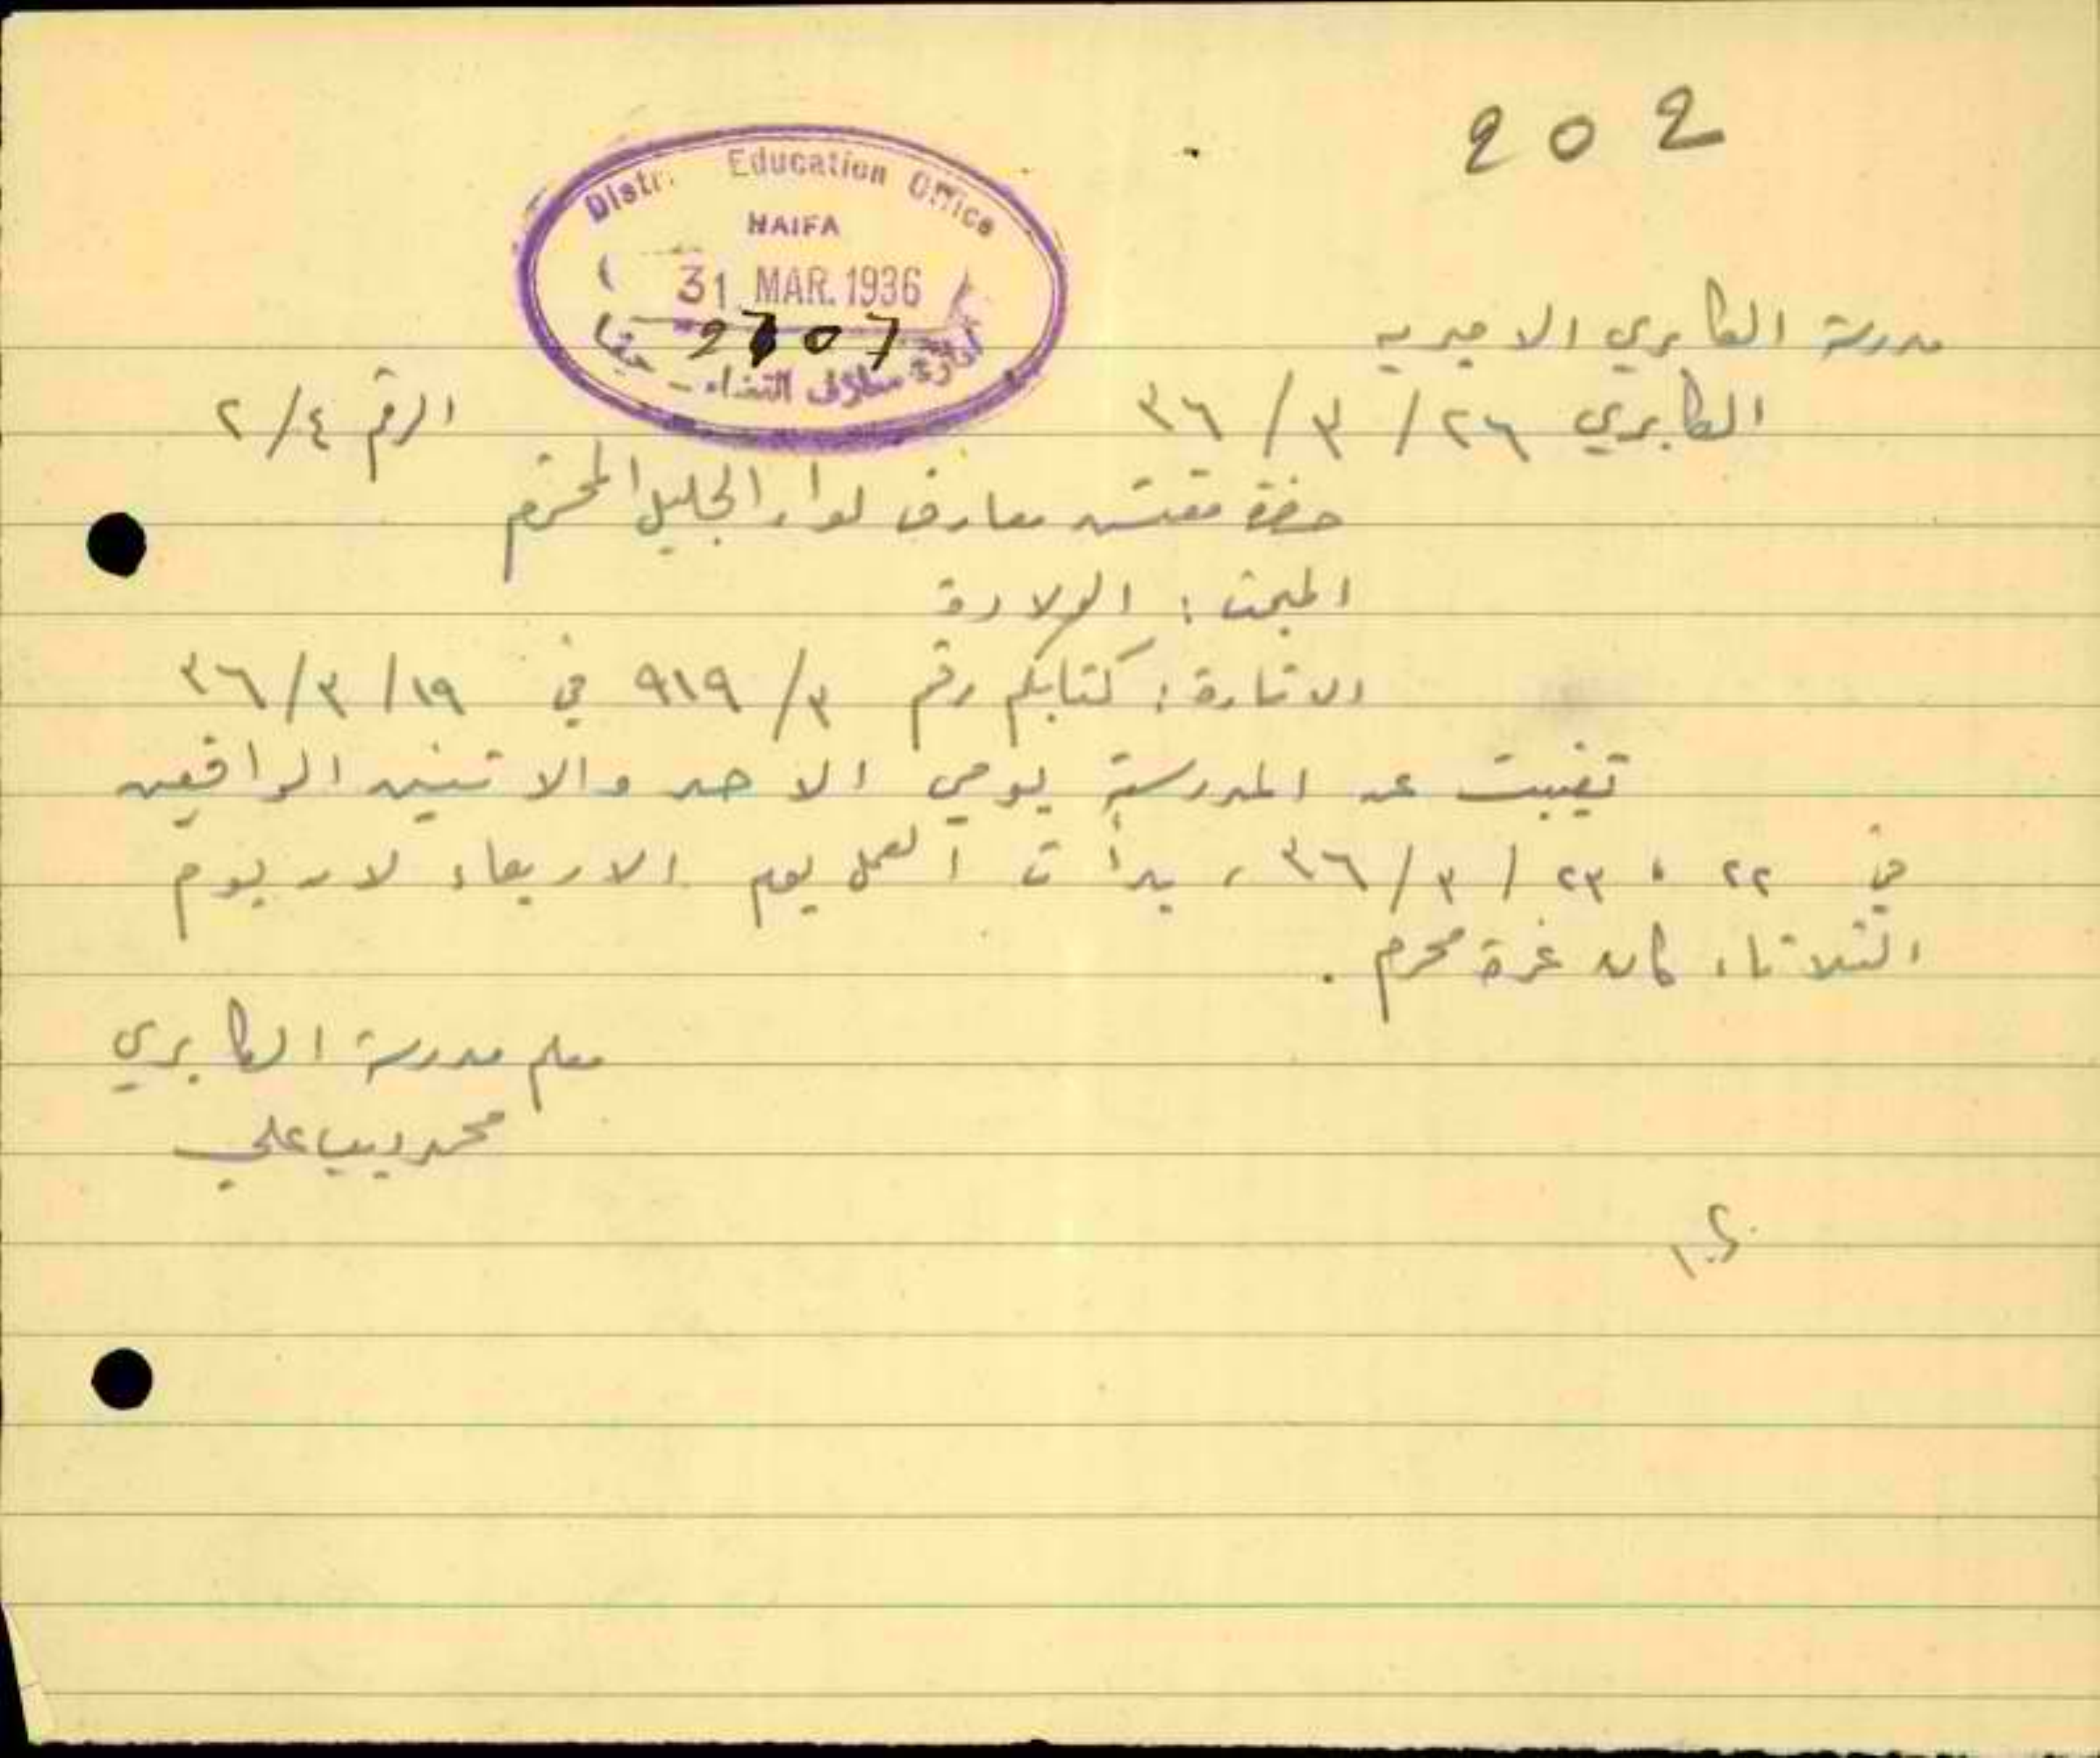 202
Distr. Education Office
HAIFA
31 MAR. 1936
2707
ادارة معارف القضاء - حيفا
مدرسة الكابري الاميرية
الكابري ٢٦/٣/٣٦
الرقم ٢/٤
حضرة مفتش معارف لواء الجليل المحترم
المبحث: الولادة
الاشارة: كتابكم رقم ٣/٩١٩ في ١٩/٣/٣٦
تغيبت عن المدرسة يومي الاحد والاثنين الواقعين
في ٢٢ ، ٢٣/٣/٣٦، بدأت العمل يوم الاربعاء لان يوم
الثلاثاء كان غرة محرم.
معلم مدرسة الكابري
محمد ديب علي